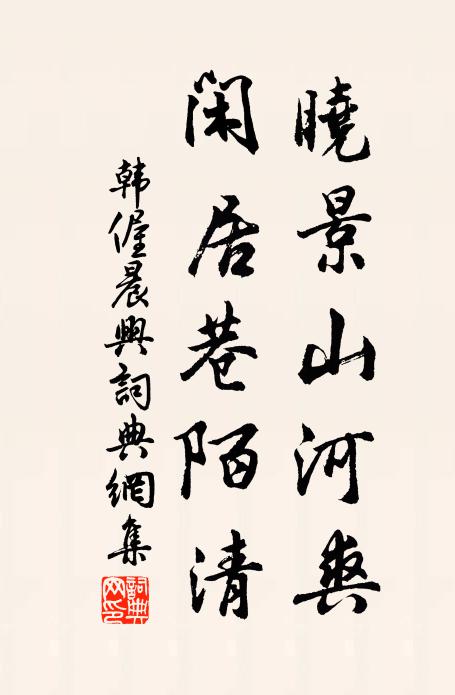 曉景山河爽
閑居巷陌清
韩偓晨興詞典網集
詞典网印